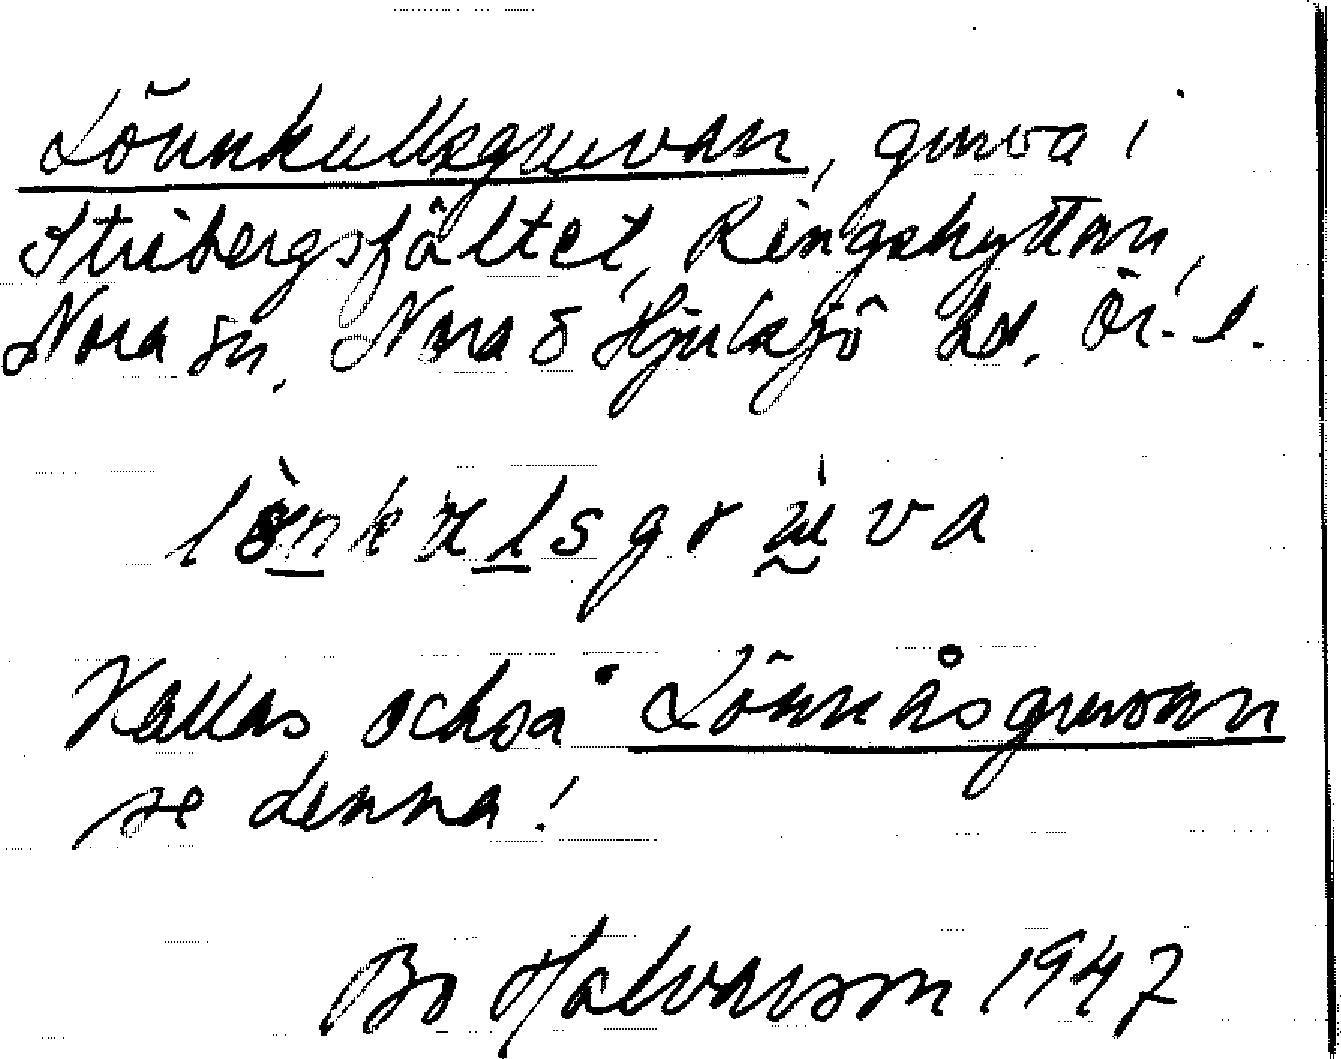 Lönnkullsgruvan, gruva i
Stribergsfältet, Ringshyttan,
Nora sn, Nora & Hjulsjö hd. Ör. l.
lö̀nkulsgru̇va
Kallas också Lönnåsgruvan
se denna!
Bo Halvarsson 1947